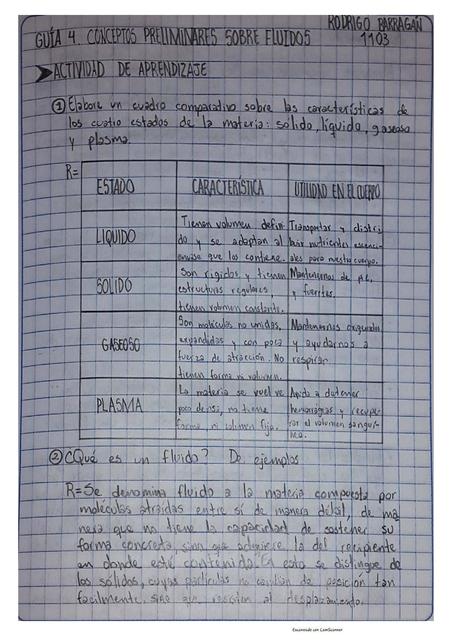 RODRIGO BARRAGÁN
GUÍA 4. CONCEPTOS PRELIMINARES SOBRE FLUIDOS
1103
ACTIVIDAD DE APRENDIZAJE
① Elabore un cuadro comparativo sobre las características de
los cuatro estados de la materia: sólido, líquido, gaseoso
y plasma.
R=
ESTADO CARACTERÍSTICA UTILIDAD EN EL CUERPO
LIQUIDO
Tienen volumen defini-
do y se adaptan al
envase que los contiene.
Transportar y distri-
buir nutrientes esenci-
ales para nuestro cuerpo.
SOLIDO
Son rigidos y tienen
estructuras regulares,
tienen volumen constante.
Mantenernos de pie,
y fuertes.
GASEOSO
Son moléculas no unidas,
expandidas y con poca
fuerza de atracción. No
tienen forma ni volumen.
Mantenernos oxigenados
y ayudarnos a
respirar
PLASMA
La materia se vuelve
poco densa, no tiene
forma ni volumen fijo.
Ayuda a detener
hemorragias y recupe-
rar el volumen sanguí-
neo.
② ¿Qué es un fluido? De ejemplos
R= Se denomina fluido a la materia compuesta por
moléculas atraidas entre sí de manera débil, de ma-
nera que no tiene la capacidad de sostener su
forma concreta, sino que adquiere la del recipiente
en donde esté contenida. En esto se distingue de
los sólidos, cuyas partículas no cambian de posición tan
facilmente, sino que resisten al desplazamiento.
Escaneado con CamScanner